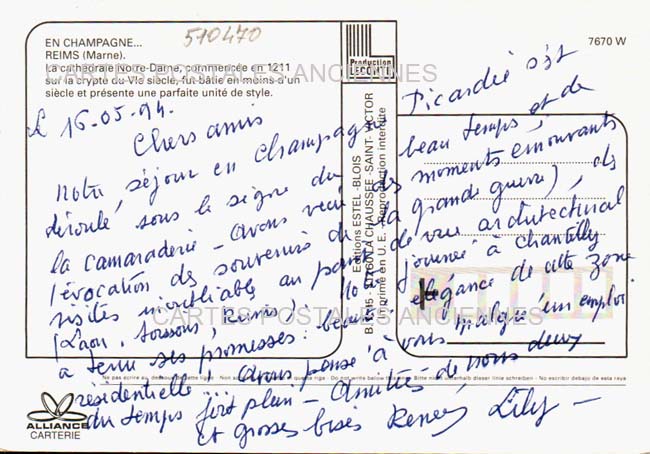 510470
EN CHAMPAGNE...
REIMS (Marne).
La cathédrale Notre-Dame, commencée en 1211
sur la crypte du VIe siècle, fut bâtie en moins d'un
siècle et présente une parfaite unité de style.
7670 W
Production
LECONTE
CARTES POSTALES ANCIENNES
Le 16-05-94.
Chers amis
Notre séjour en Champagne Picardie s'est
déroulé sous le signe du beau temps, et de
la camaraderie - Avons vécu des moments émouvants
l'évocation des souvenirs de la grande guerre), des
visites inoubliable au point de vue architectural
(Laon, Soissons, Reims). journée à Chantilly
a tenu ses promesses: beauté, élégance de cette zone
résidentielle, avons pensé à vous malgré un emploi
du temps fort plein - Amitiés de nous deux
et grosses bises Renée, Lily -
Editions ESTEL - BLOIS
41260 LA CHAUSSEE-SAINT-VICTOR
Imprimé en U.E. - Reproduction interdite
CARTES POSTALES ANCIENNES
Bitte nicht unterhalb dieser linie schreiben - No escribir debajo de esta raya
ALLIANCE
CARTERIE